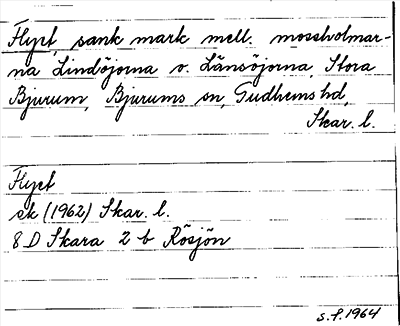 Flyet, sank mark mell. mossholmar-
na Lindöjorna o. Länsöjorna, Stora
Bjurum, Bjurums sn, Gudhems hd,
Skar. l.
Flyet
sk (1962) Skar. l.
8 D Skara 2 b Rösjön
S.F. 1964